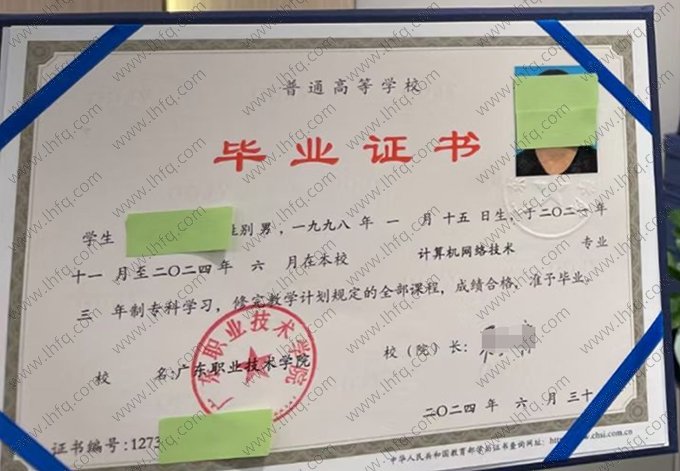 普通高等学校
毕业证书
学生 性别 男，一九九八年 一 月十五日生，于二〇二一年
十一月至二〇二四年 六 月在本校 计算机网络技术 专业
三 年制专科学习，修完教学计划规定的全部课程，成绩合格，准予毕业。
校 名：广东职业技术学院
校（院）长：
二〇二四年 六 月 三十
证书编号：1273
中华人民共和国教育部学历证书查询网址：http://www.chsi.com.cn
广东职业技术学院
www.lhfq.com